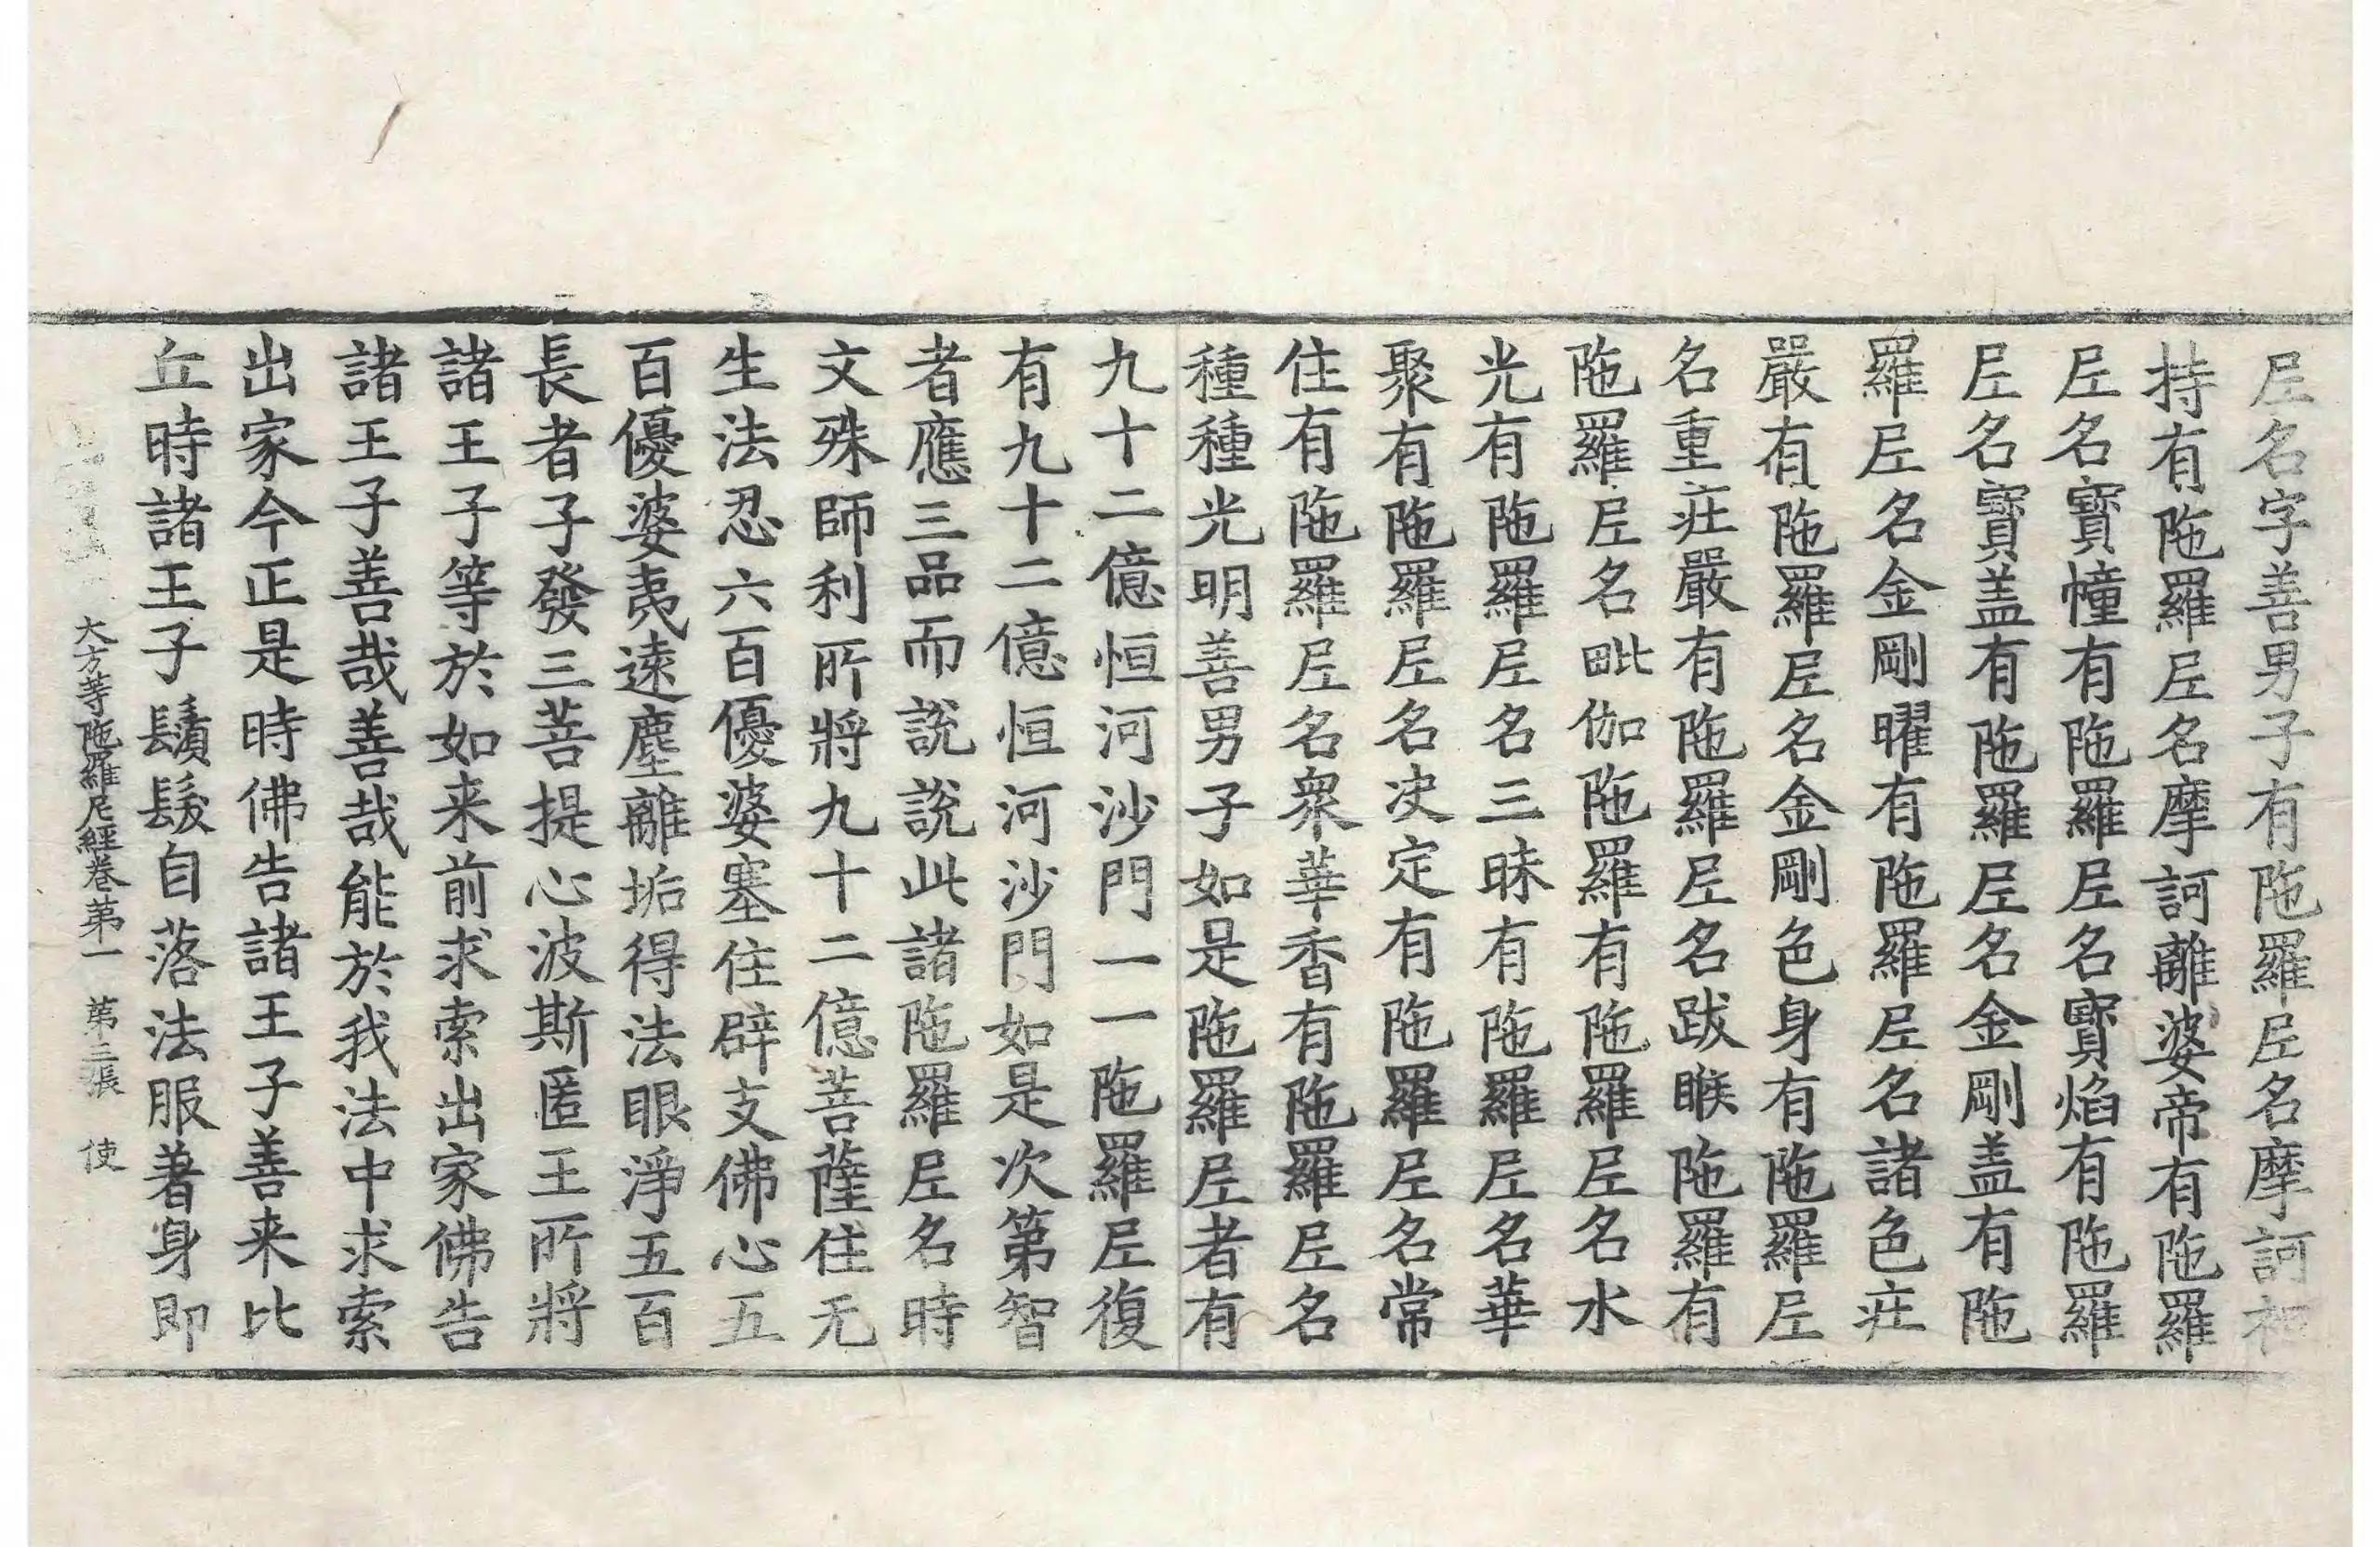 尼名字善男子有陁羅尼名摩訶袒
持有陁羅尼名摩訶離婆帝有陁羅
尼名寶幢有陁羅尼名寶焰有陁羅
尼名寶盖有陁羅尼名金剛盖有陁
羅尼名金剛曜有陁羅尼名諸色疘
嚴有陁羅尼名金剛色身有陁羅尼
名重疘嚴有陁羅尼名跋睺陁羅有
陁羅尼名毗伽陁羅有陁羅尼名水
光有陁羅尼名三昧有陁羅尼名華
聚有陁羅尼名决定有陁羅尼名常
住有陁羅尼名衆華香有陁羅尼名
種種光明善男子如是陁羅尼者有
九十二億恒河沙門一一陁羅尼復
有九十二億恒河沙門如是次第智
者應三品而說說此諸陁羅尼名時
文殊師利所將九十二億菩薩住无
生法忍六百優婆塞住辟支佛心五
百優婆夷遠塵離垢得法眼淨五百
長者子發三菩提心波斯匿王所將
諸王子等於如来前求索出家佛告
諸王子善哉善哉能於我法中求索
出家今正是時佛告諸王子善来比
丘時諸王子鬚髮自落法服著身即
大方等陁羅尼經卷第一 第三張 使